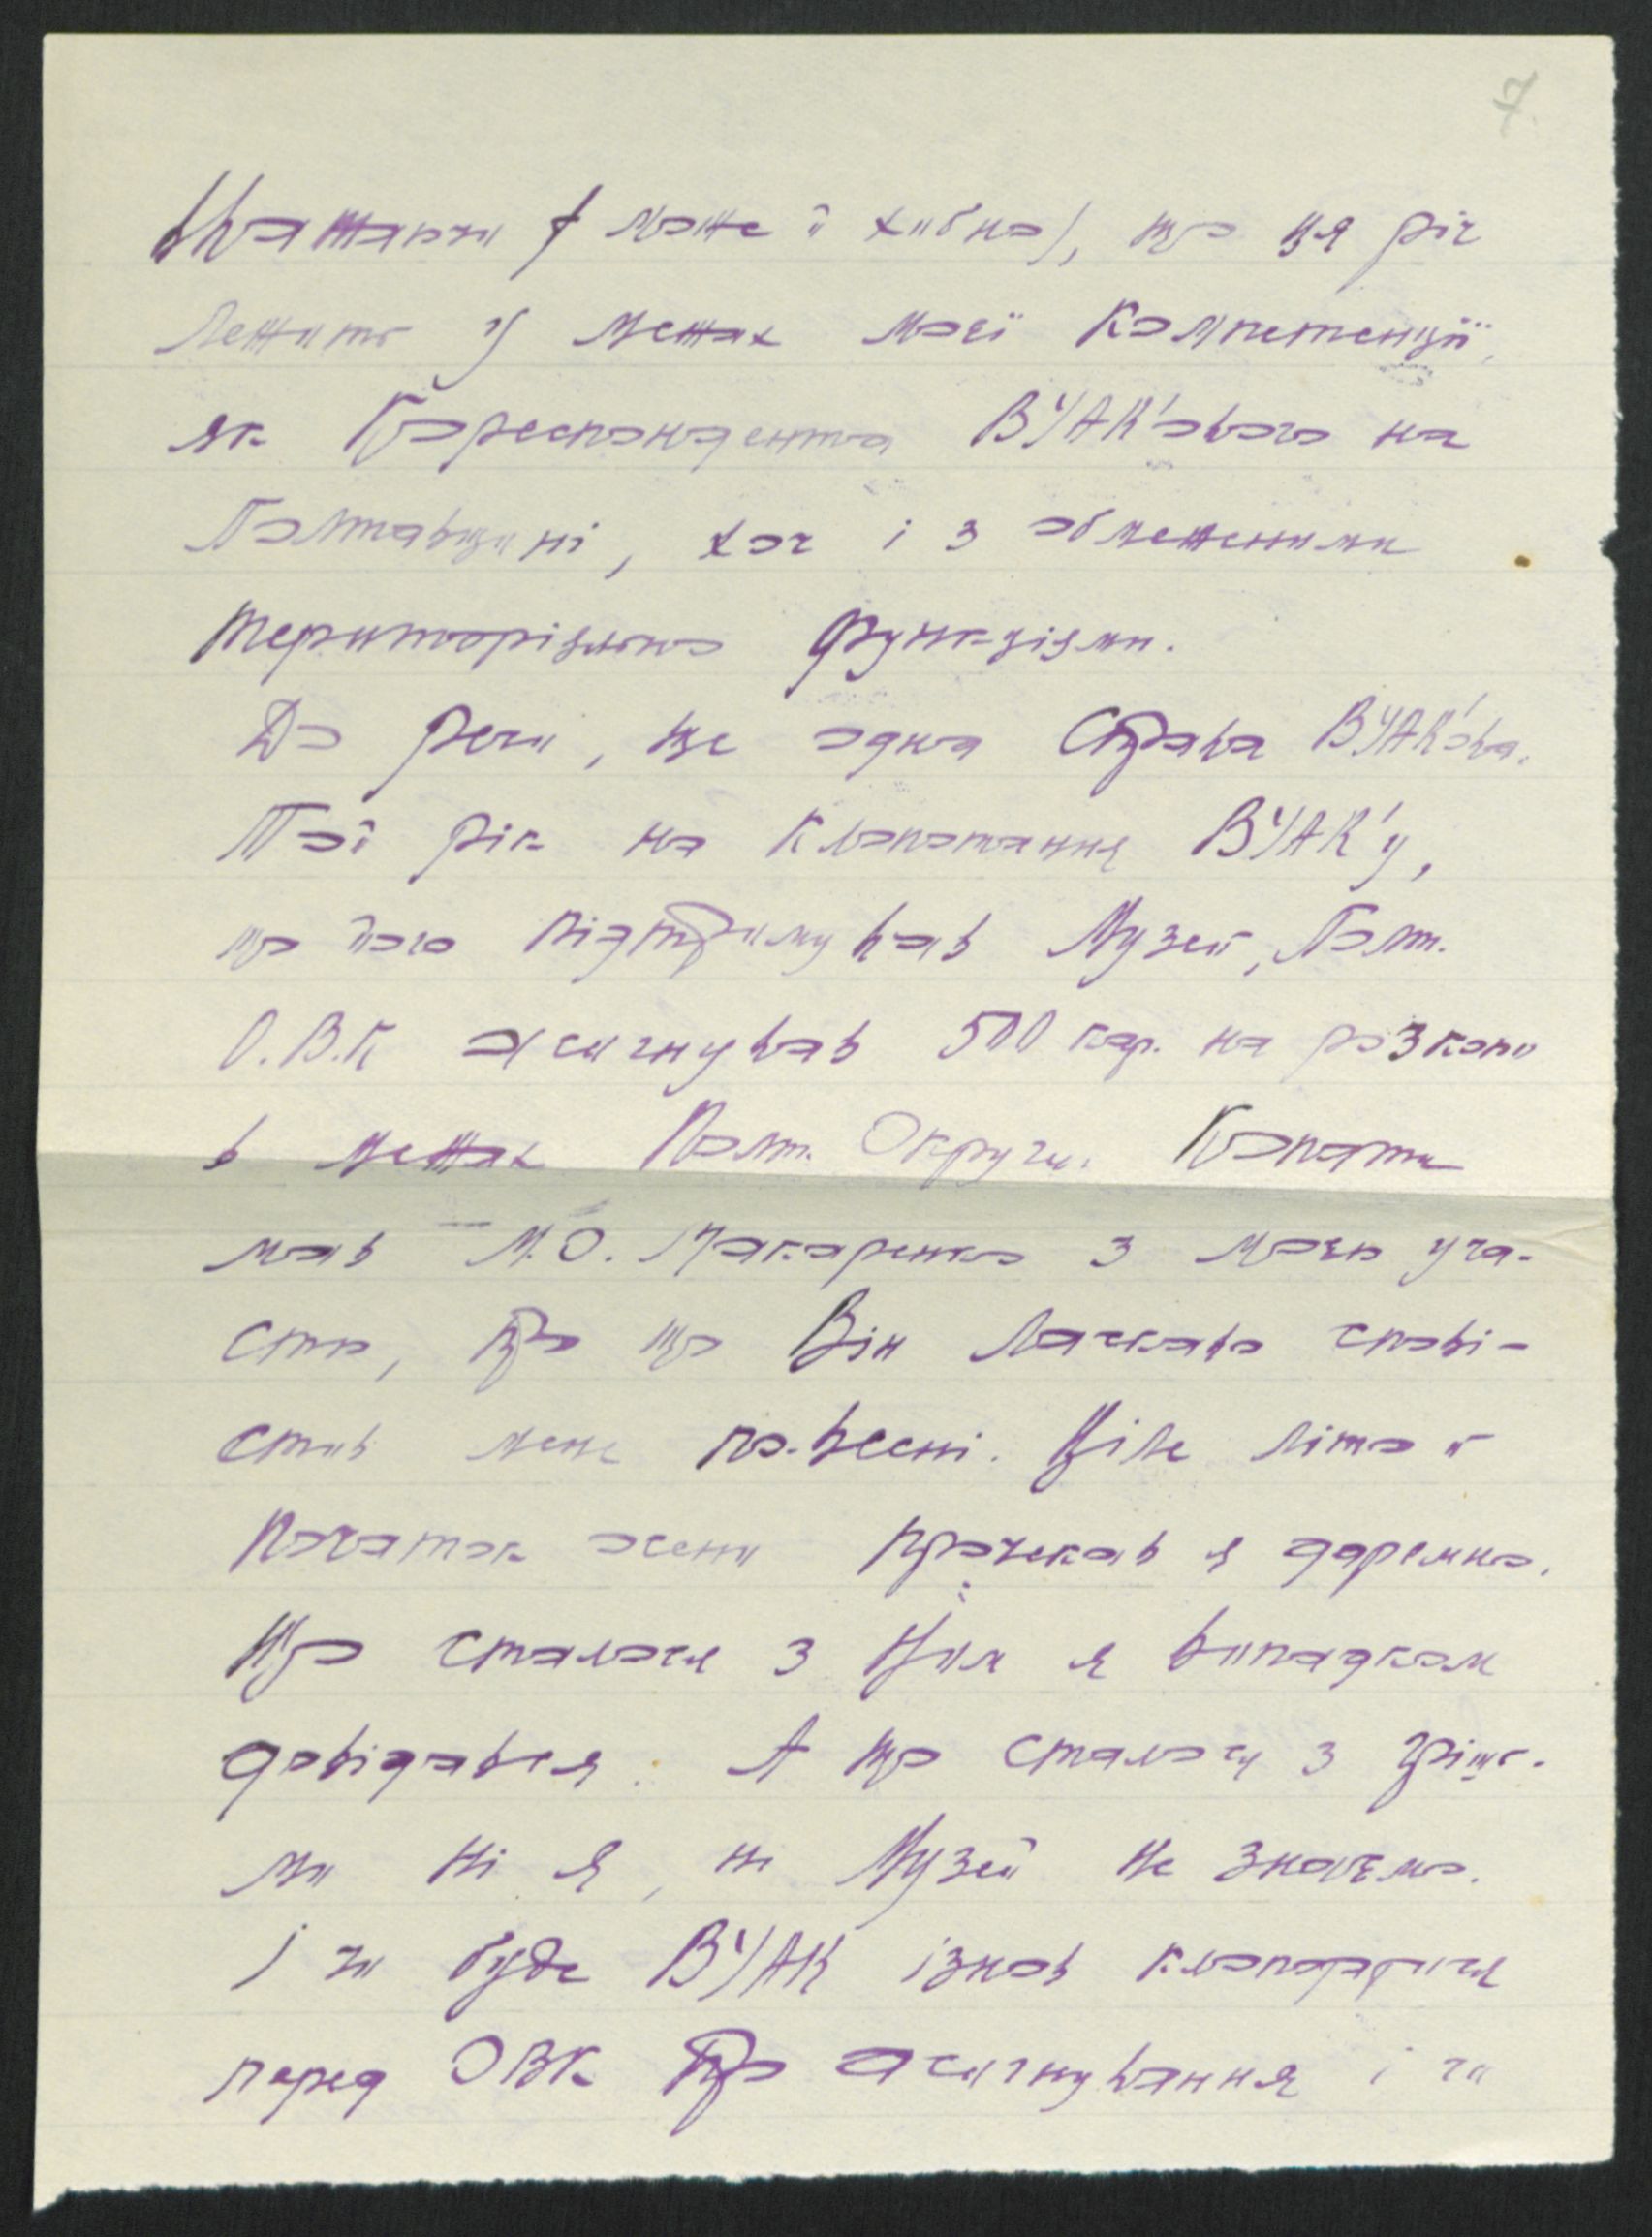 7
Уважаючи (може й хибно), що ця річ
лежить у межах моєї компетенції,
як кореспондента ВУАК'ового на
Полтавщині, хоч і з обмеженими
територіяльно функціями.
До речи, ще одна справа ВУАК'ова.
Той рік на клопотання ВУАК'у,
що його підтримував Музей, Полт.
О.В.К асигнував 500 кар. на розкопи
в межах Полт. Округи. Копати
мав М.О. Макаренко з моєю уча-
стю, про що Він ласкаво спові-
стив мене по-весні. Ціле літо й
початок осени прочекав я даремно.
Що сталося з Ним я випадком
довідався. А що сталось з гріш-
ми ні я, ні Музей не знаємо.
І чи буде ВУАК ізнов клопотатися
перед ОВК про асигнування і чи